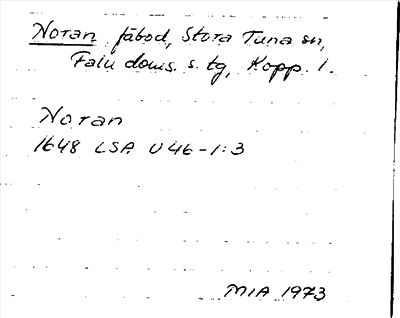 Noran fäbod, Stora Tuna sn,
Falu doms. s. tg, Kopp. l.
Noran
1648 LSA U46-1:3
MIA 1973